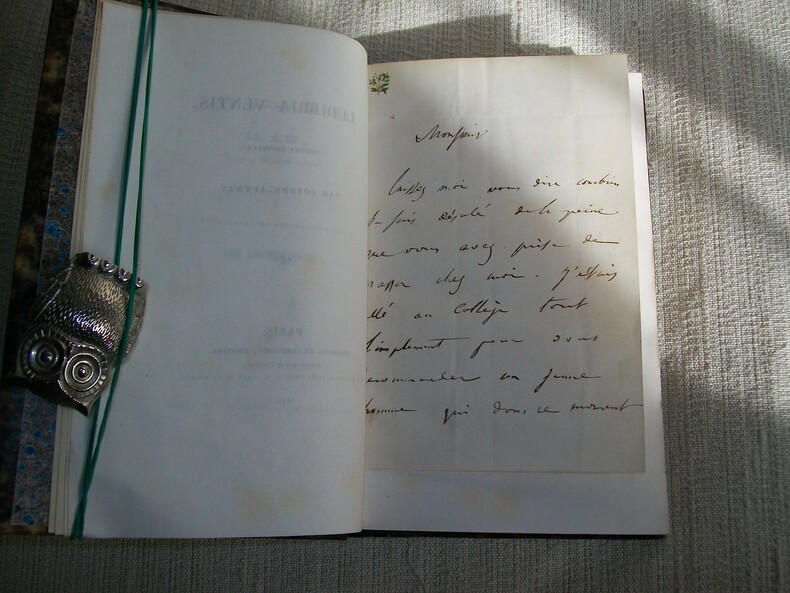 LUDIBRIA VENTIS.
PARIS,
Monsieur
laissez moi vous dire combien
je suis désolé de la peine
que vous avez prise de
passer chez moi. J'étais
allé au Collège tout
simplement pour vous
recommander un jeune
homme qui dans ce moment